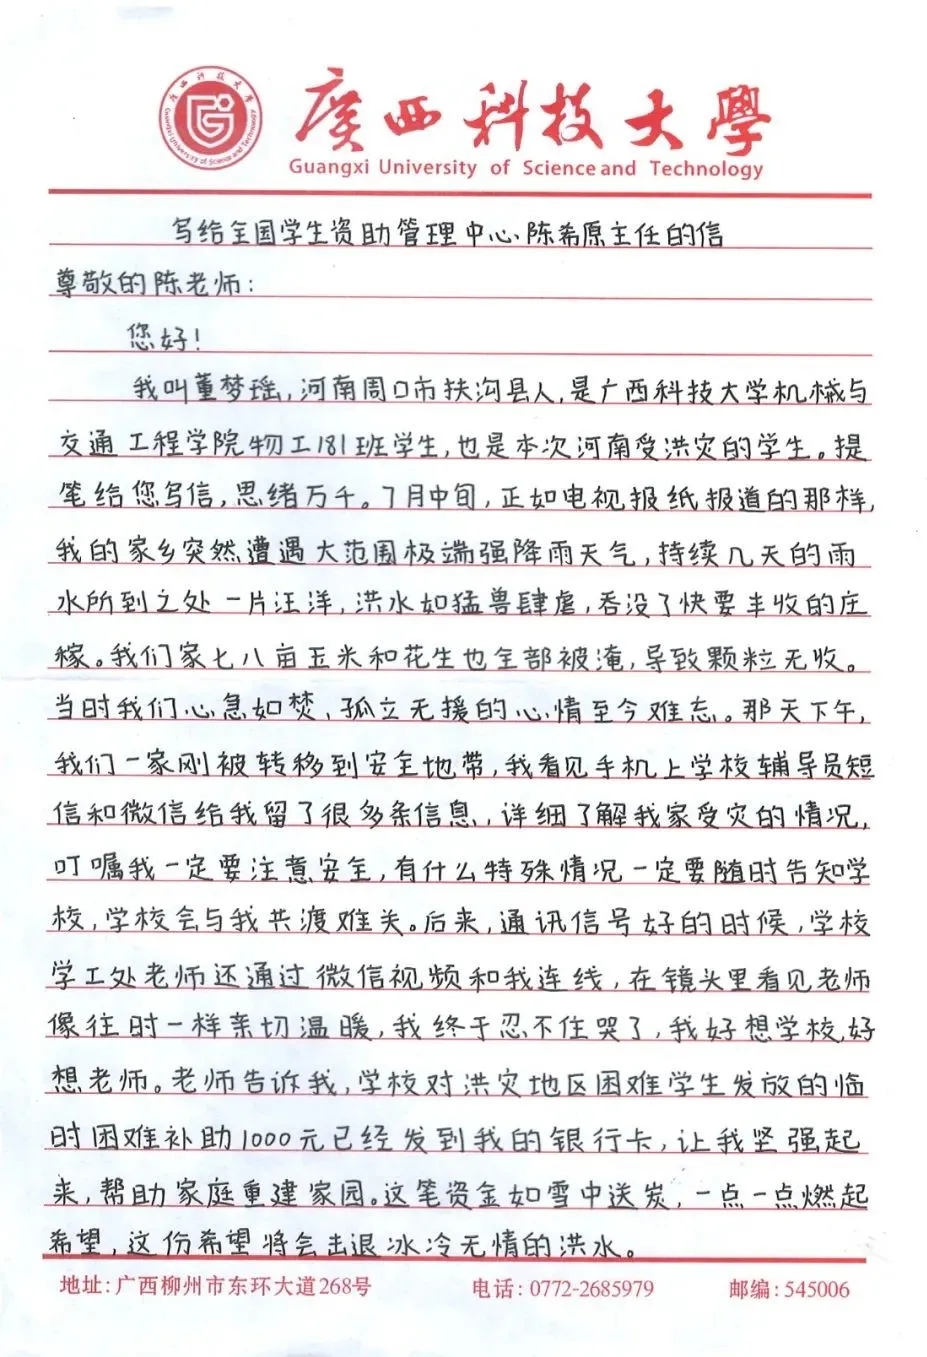 广西科技大學
Guangxi University of Science and Technology
写给全国学生资助管理中心陈希原主任的信
尊敬的陈老师:
您好!
我叫董梦瑶,河南周口市扶沟县人,是广西科技大学机械与
交通工程学院物工181班学生,也是本次河南受洪灾的学生。提
笔给您写信,思绪万千。7月中旬,正如电视报纸报道的那样,
我的家乡突然遭遇大范围极端强降雨天气,持续几天的雨
水所到之处一片汪洋,洪水如猛兽肆虐,吞没了快要丰收的庄
稼。我们家七八亩玉米和花生也全部被淹,导致颗粒无收。
当时我们心急如焚、孤立无援的心情至今难忘。那天下午,
我们一家刚被转移到安全地带,我看见手机上学校辅导员短
信和微信给我留了很多条信息,详细了解我家受灾的情况,
叮嘱我一定要注意安全,有什么特殊情况一定要随时告知学
校,学校会与我共渡难关。后来,通讯信号好的时候,学校
学工处老师还通过微信视频和我连线,在镜头里看见老师
像往时一样亲切温暖,我终于忍不住哭了,我好想学校,好
想老师。老师告诉我,学校对洪灾地区困难学生发放的临
时困难补助1000元已经发到我的银行卡,让我坚强起
来,帮助家庭重建家园。这笔资金如雪中送炭,一点一点燃起
希望,这份希望将会击退冰冷无情的洪水。
地址:广西柳州市东环大道268号 电话:0772-2685979 邮编:545006